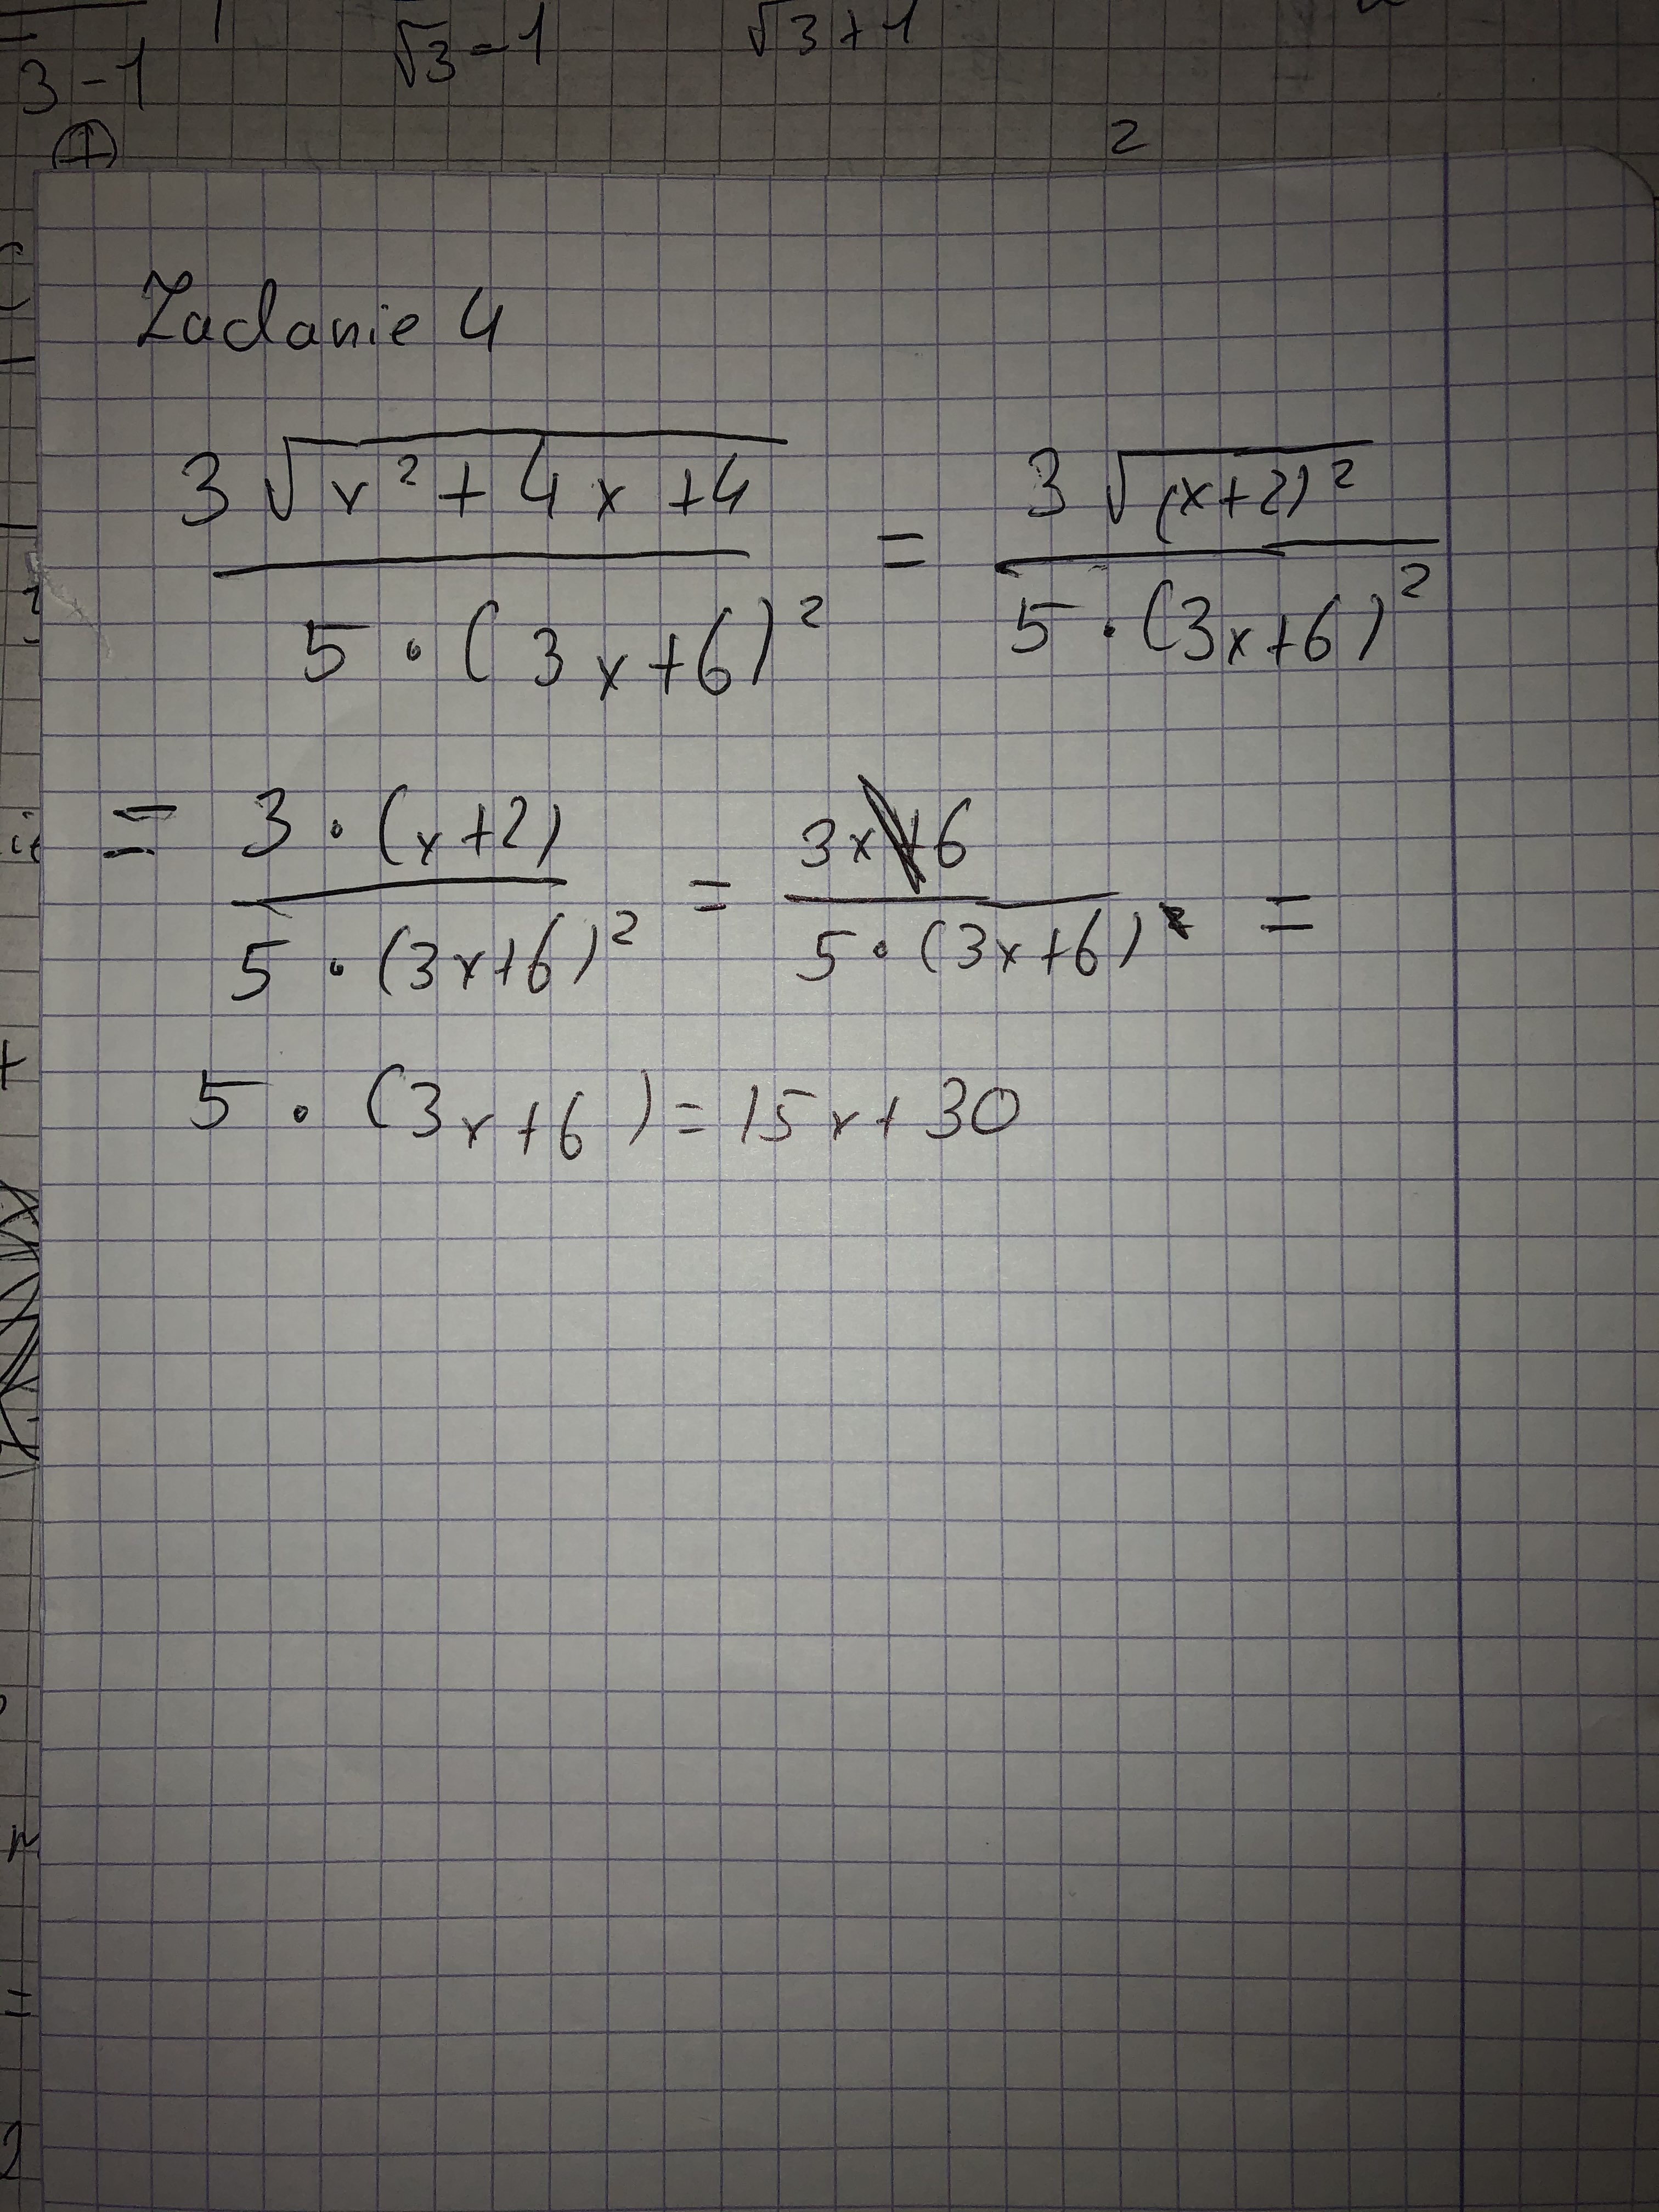 3-1 √3-1 √3+1
2
Zadanie 4
3√x²+4x+4 / 5·(3x+6)² = 3√(x+2)² / 5·(3x+6)²
= 3·(x+2) / 5·(3x+6)² = 3x+6 / 5·(3x+6) =
5·(3x+6)=15x+30